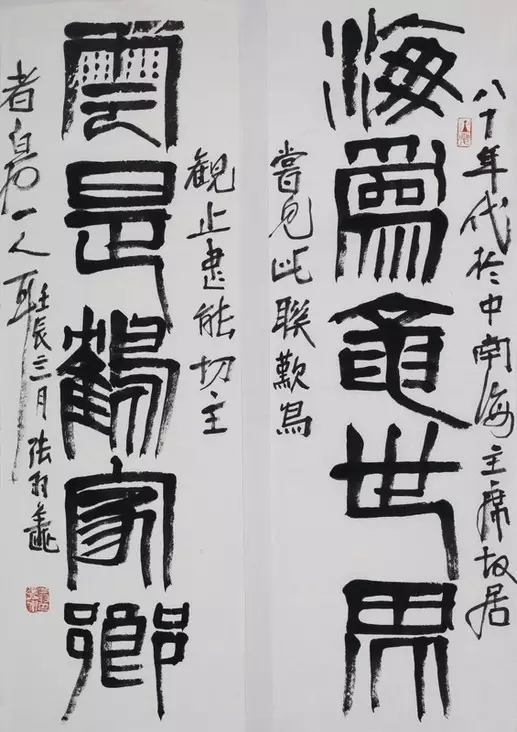 海為龜世界
八十年代於中南海主席故居
嘗見此聯歎為
雲是鶴家鄉
観止能切主
者白石一人耳壬辰三月張羽